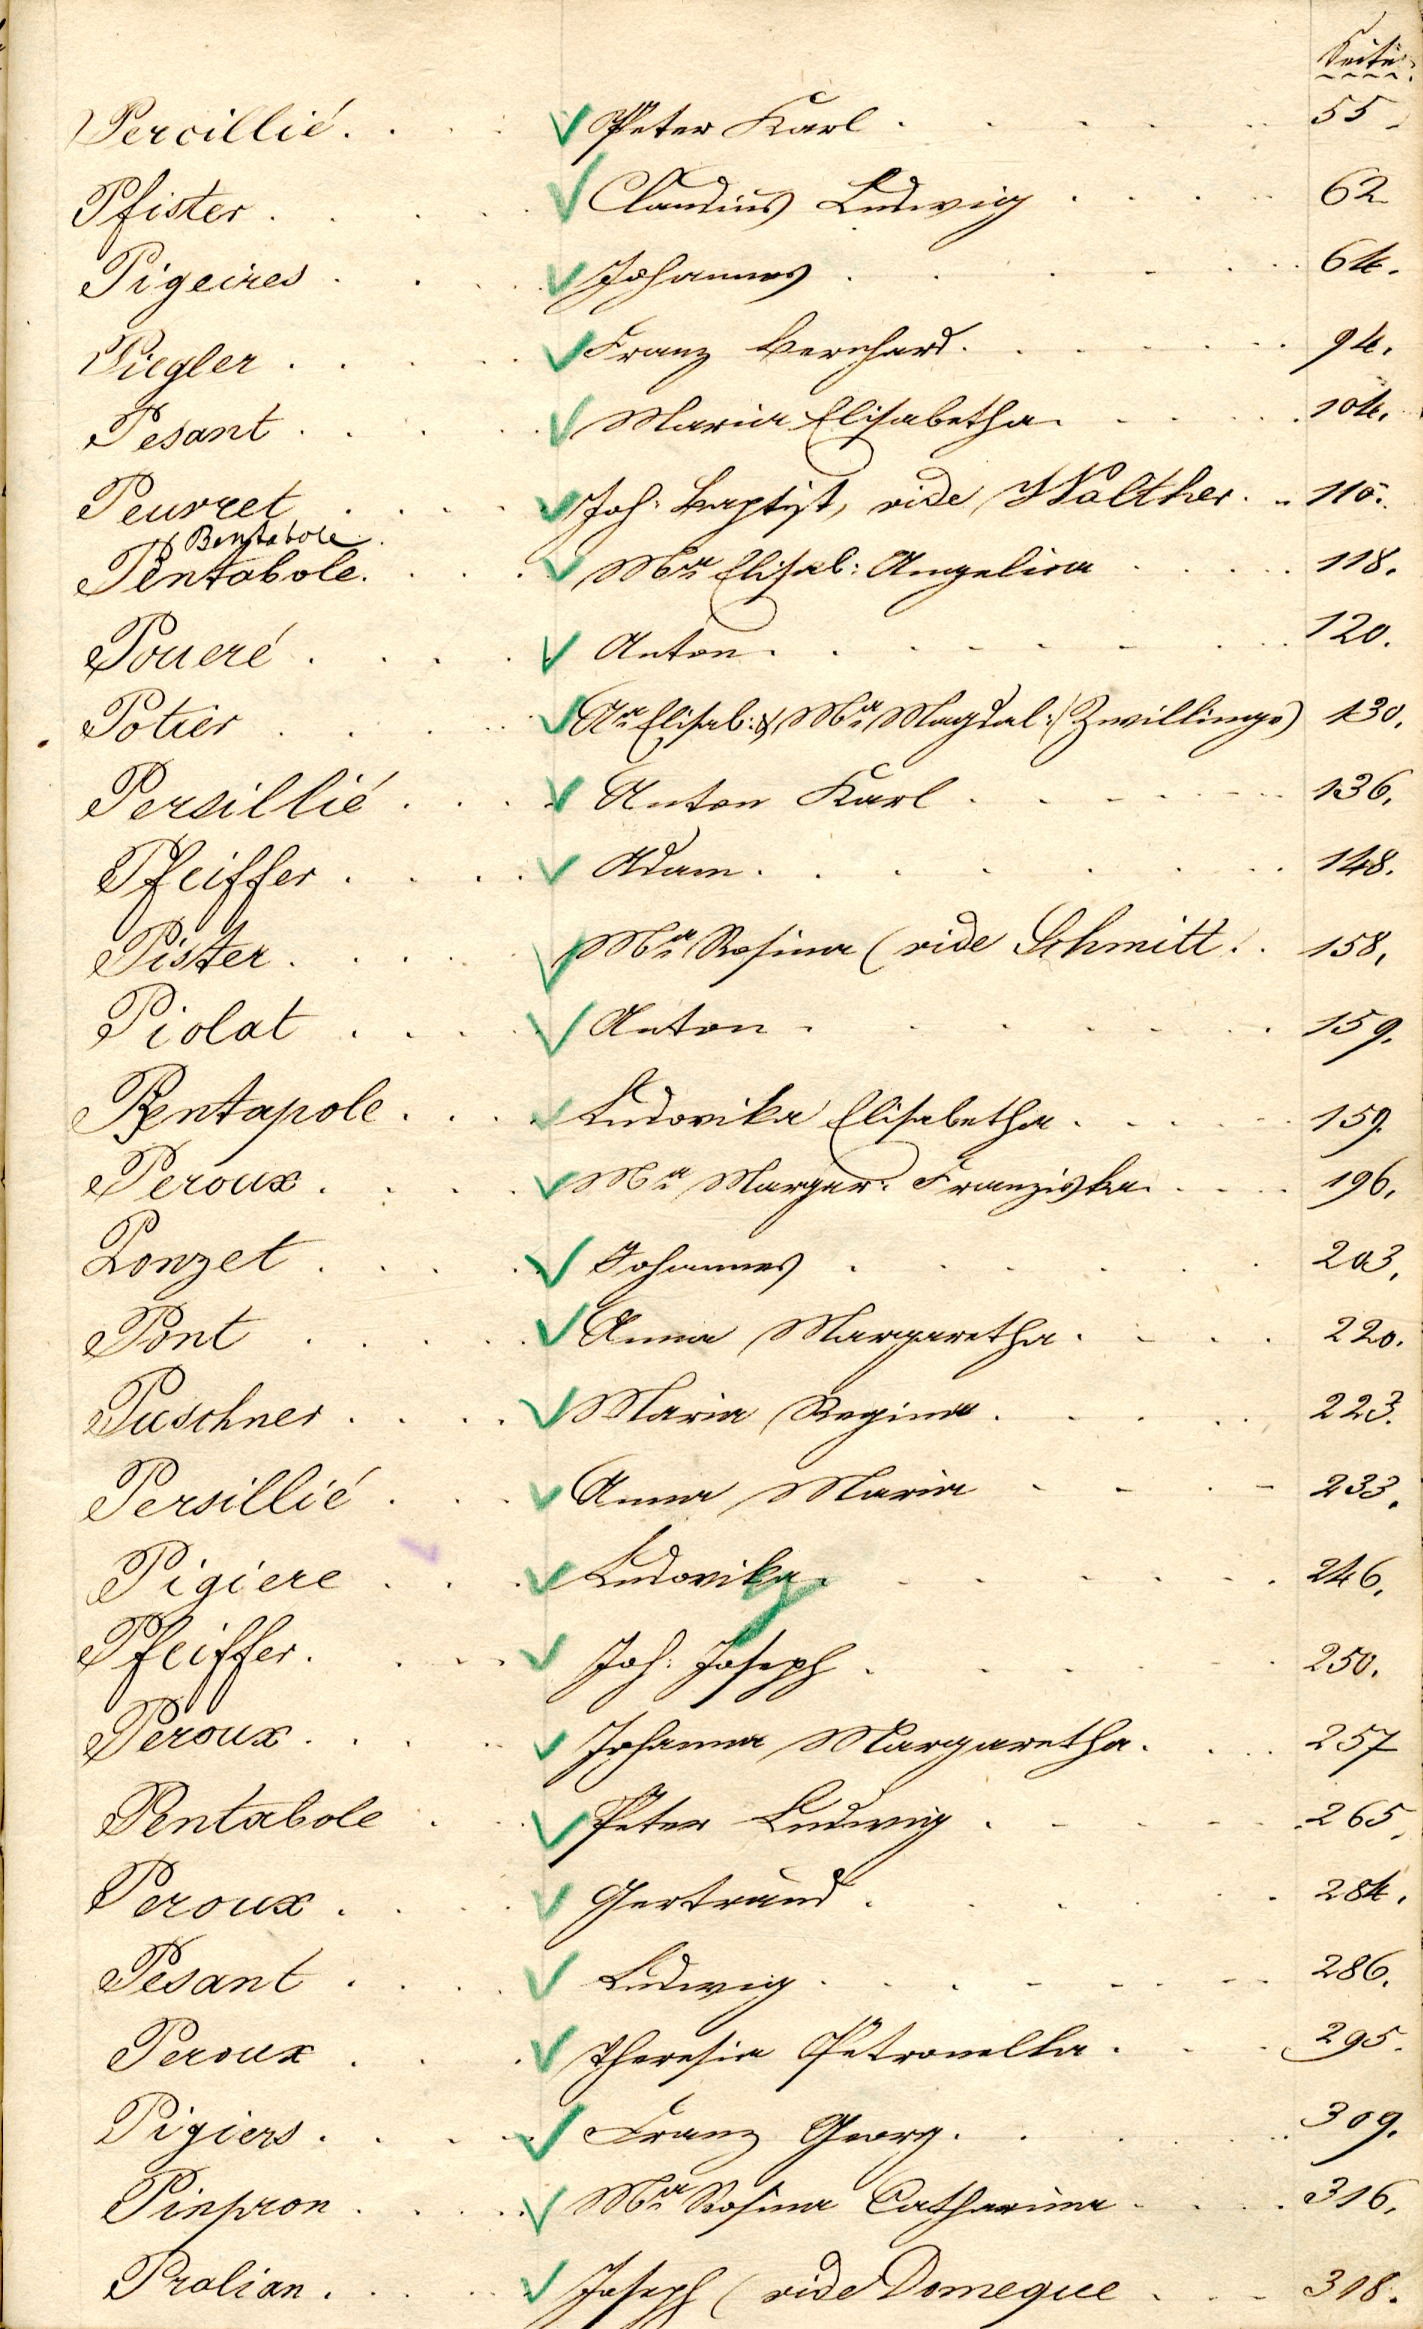 Seite
Percillié. Peter Karl 55.
Pfister. Claudius Ludwig 62
Pigeires Johannes 64.
Piegler Franz Bernhard. 94.
Pesant Maria Elisabetha. 104.
Peurret Joh. Baptist, vide Walther. 115.
Bentabole
Pentabole. Mª Elisab: Angelica 118.
Poueré Anton. 120.
Potier Aª Elisab: & Mª Magdal: (Zwillinge) 130.
Persillié Anton Karl 136.
Pfeiffer Adam. 148.
Pister. Mª Rosina (vide Schmitt. 158.
Piolat Anton 159.
Pentapole Ludovika Elisabetha. 159.
Peroux Mª Margar. Franziska. 196.
Ponzet Johannes 203.
Pont Anna Margaretha. 220.
Puschner Maria Regina. 223.
Persillié Anna Maria 233.
Pigiere Ludovika. 246.
Pfeiffer. Joh. Joseph 250.
Peroux. Johanna Margaretha. 257
Pentabole Peter Ludwig 265.
Peroux. Gertraud 284.
Pesant Ludwig 286.
Peroux Theresia Petronella. 295.
Pigiers. Franz Georg. 309.
Pinpron Mª Rosina Catharina 316.
Pralian. Joseph (vide Domeque 318.